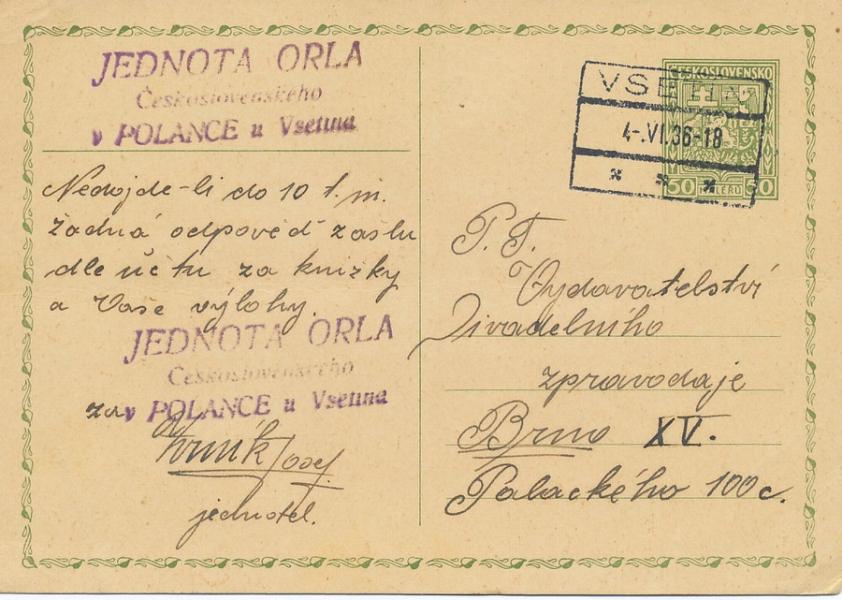 JEDNOTA ORLA
Československého
v POLANCE u Vsetína
Nedojde-li do 10 t. m.
žádná odpověď zašlu
dle účtu za knížky
a Vaše výlohy.
JEDNOTA ORLA
Československého
za v POLANCE u Vsetína
Josef
jednatel.
ČESKOSLOVENSKO
50 HALÉŘŮ 50
VSETÍN
4-.VI.36-18
* * *
P. T.
Vydavatelství
Divadelního
zpravodaje
Brno XV.
Palackého 100 c.